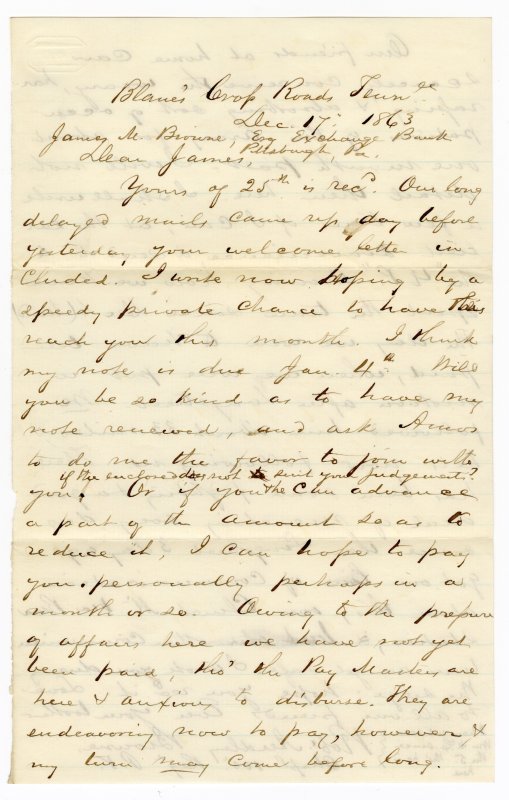 Blane's Cross Roads Tenn ee
Dec. 17. 1863
James M. Browne, Esq Exchange Bank
Pittsburgh, Pa.
Dear James,
Yours of 25th is recd. Our long
delayed mails came up day before
yesterday your welcome lette in
cluded. I write now hoping by a
speedy private chance to have this
reach you this month I think
my note is due Jan. 4th Will
you be so kind as to have my
note renewed, and ask Amos
to do me the favor to join with
if the enclosed does not suit your judgement?
you. Or if you can advance
a part of the amount so as to
reduce it, I can hope to pay
you personally perhaps in a
month or so. Owing to the
of affairs here we have not yet
been paid, tho' the Pay Masters are
here & anxious to disburse. They are
endeavoring now to pay, however &
my turn may come before long.